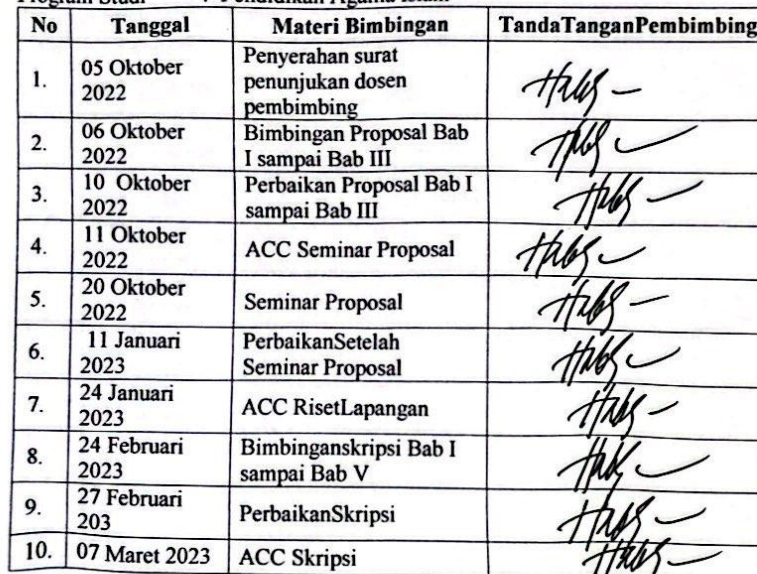 Program Studi : Pendidikan Agama Islam
No Tanggal Materi Bimbingan TandaTanganPembimbing
1. 05 Oktober 2022 Penyerahan surat
penunjukan dosen
pembimbing
2. 06 Oktober 2022 Bimbingan Proposal Bab
I sampai Bab III
3. 10 Oktober 2022 Perbaikan Proposal Bab I
sampai Bab III
4. 11 Oktober 2022 ACC Seminar Proposal
5. 20 Oktober 2022 Seminar Proposal
6. 11 Januari 2023 PerbaikanSetelah
Seminar Proposal
7. 24 Januari 2023 ACC RisetLapangan
8. 24 Februari 2023 Bimbinganskripsi Bab I
sampai Bab V
9. 27 Februari 203 PerbaikanSkripsi
10. 07 Maret 2023 ACC Skripsi